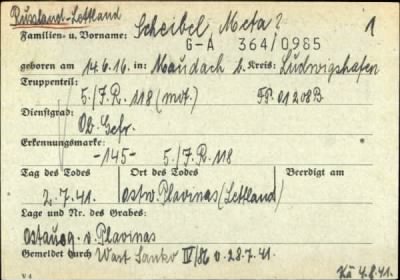 Russland-Lettland
Familien- u. Vorname: Scheibel, Meta? 1
G-A 364/0985
geboren am 14.6.16. in: Maudach b. Kreis: Ludwigshafen
Truppenteil:
5./J.R. 118 (mot.) FP. 01208B
Dienstgrad:
Ob. Gefr.
Erkennungsmarke:
-145- 5./J.R. 118
Tag des Todes Ort des Todes Beerdigt am
2.7.41. ostw. Plavinas (Lettland)
Lage und Nr. des Grabes:
Ostausg. v. Plavinas
Gemeldet durch Wast Sanko IV/86 v. 28.7.41.
V 4 Kä 4.8.41.